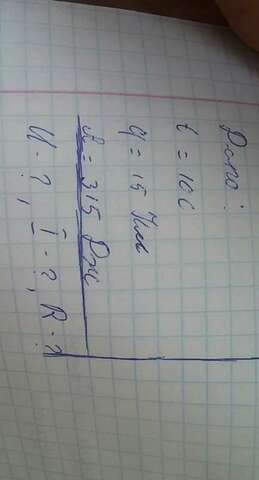 Дано:
t = 10 с
q = 15 Кл
A = 315 Дж
U - ?, I - ?, R - ?